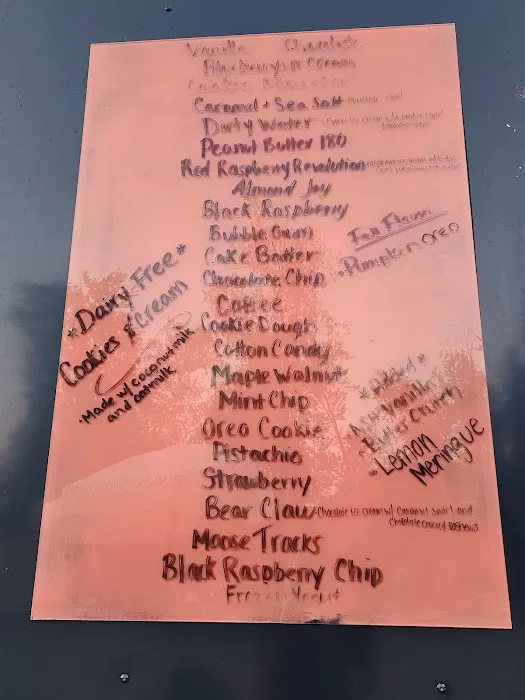 Vanilla Chocolate
Blueberrys n' Cream
Cookie Monster
Caramel + Sea Salt
Dirty Water
Peanut Butter 180
Red Raspberry Revolution
Almond Joy
Black Raspberry
Bubble Gum
Cake Batter
Chocolate Chip
Coffee
Cookie Dough
Cotton Candy
Maple Walnut
Mint Chip
Oreo Cookie
Pistachio
Strawberry
Bear Claw Chocolate ice cream w/ caramel swirl and
chocolate covered cashews
Moose Tracks
Black Raspberry Chip
Frozen Yogurt
Fall Flavors
- Pumpkin Oreo
*Dairy Free*
Cookies & Cream
• Made w/ coconut milk
and oatmilk
*Added*
Vanilla
Butter Crunch
- Lemon
Meringue